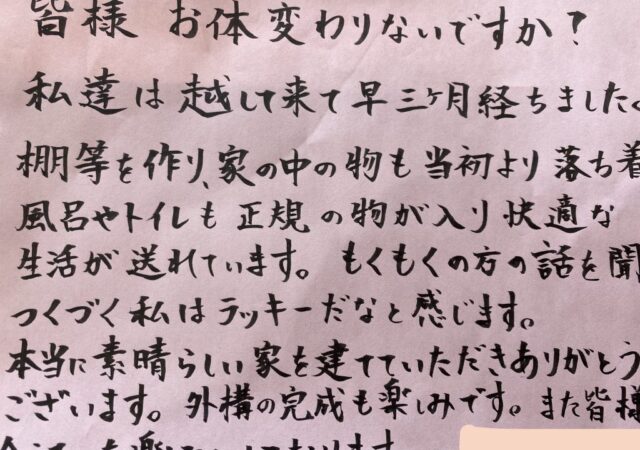 皆様 お体変わりないですか？
私達は越して来て早三ヶ月経ちました
棚等を作り、家の中の物も当初より落ち着
風呂やトイレも正規の物が入り快適な
生活が送れています。もくもくの方の話を聞
つくづく私はラッキーだなと感じます。
本当に素晴らしい家を建てていただきありがとう
ございます。外構の完成も楽しみです。また皆様